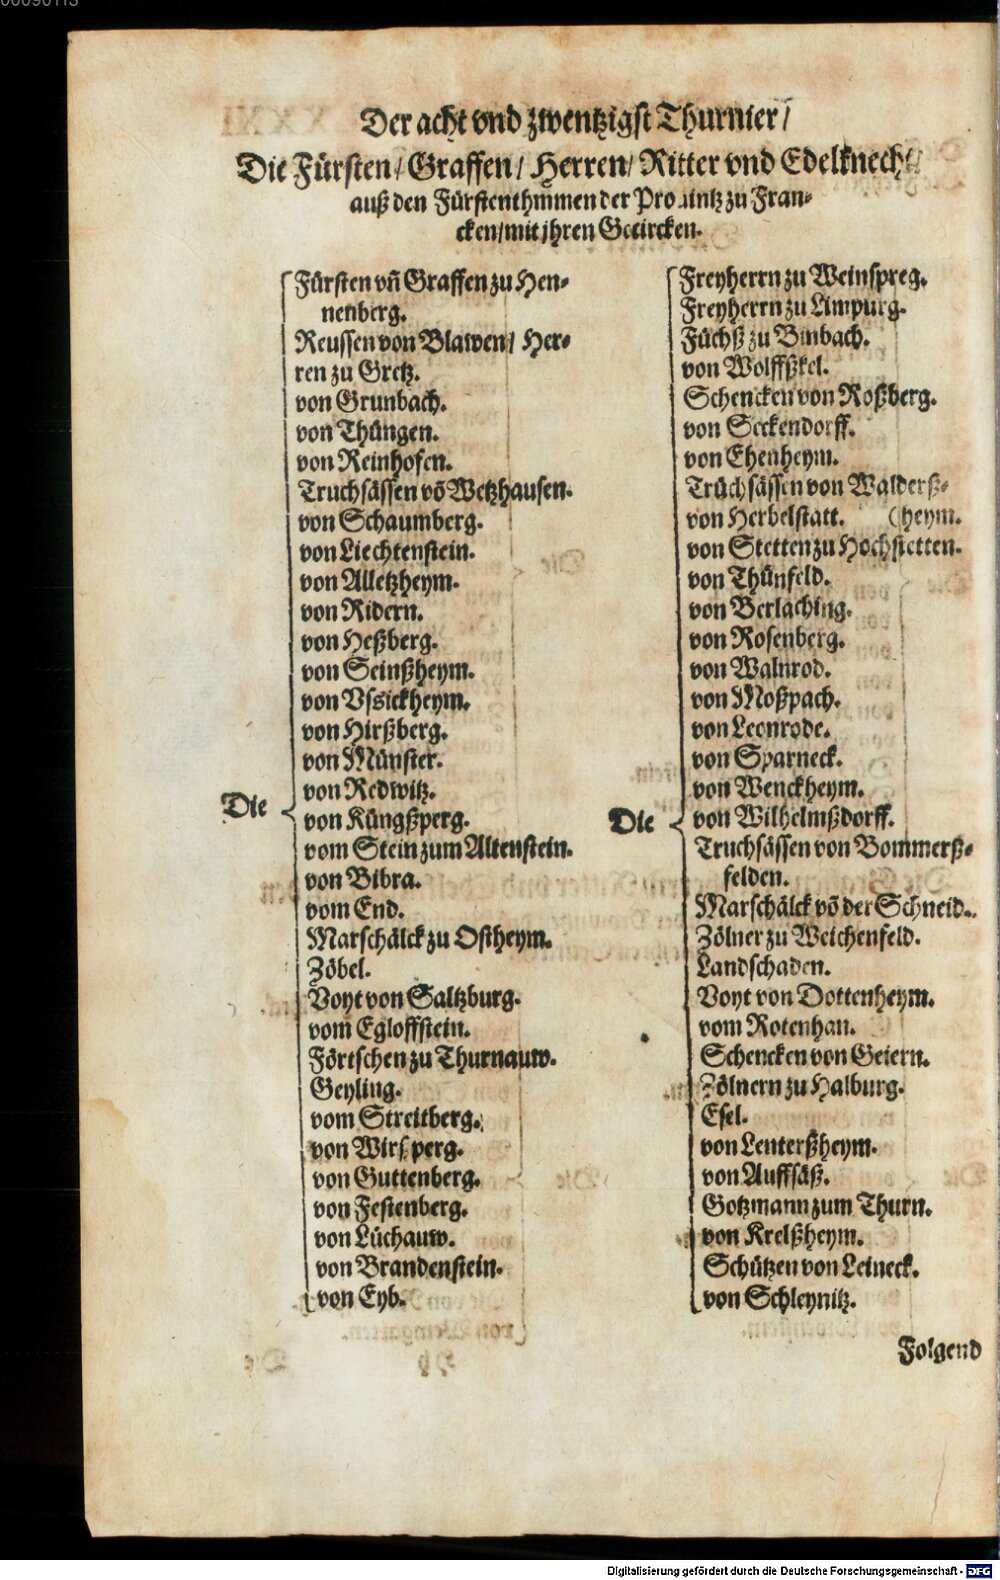 Der acht vnd zwentzigst Thurnier/
Die Fürsten/ Graffen/ Herren/ Ritter vnd Edelknecht/
auß den Fürstenthummen der Prouintz zu Fran-
cken/ mit jhren Gecircken.
Fürsten vñ Graffen zu Hen-
nenberg.
Reussen von Blawen/ Her-
ren zu Gretz.
von Grunbach.
von Thüngen.
von Reinhofen.
Truchsässen võ Wetzhausen.
von Schaumberg.
von Liechtenstein.
von Alletzheym.
von Ridern.
von Heßberg.
von Seinßheym.
von Vssickheym.
von Hirßberg.
von Münster.
von Redwitz.
Die
von Küngßperg.
vom Stein zum Altenstein.
von Bibra.
vom End.
Marschälck zu Ostheym.
Zöbel.
Voyt von Saltzburg.
vom Egloffstein.
Förtschen zu Thurnauw.
Geyling.
vom Streitberg.
von Wirsperg.
von Guttenberg.
von Festenberg.
von Lüchauw.
von Brandenstein.
von Eyb.
Freyherrn zu Weinspreg.
Freyherrn zu Limpurg.
Füchß zu Binbach.
von Wolffßkel.
Schencken von Roßberg.
von Seckendorff.
von Ehenheym.
Trüchsässen von Walderß-
von Herbelstatt. (heym.
von Stetten zu Hochstetten.
von Thünfeld.
von Berlaching.
von Rosenberg.
von Walnrod.
von Moßpach.
von Leonrode.
von Sparneck.
von Wenckheym.
Die
von Wilhelmßdorff.
Truchsässen von Bommerß-
felden.
Marschälck võ der Schneid.
Zölner zu Weichenfeld.
Landschaden.
Voyt von Dottenheym.
vom Rotenhan.
Schencken von Geiern.
Zölnern zu Halburg.
Esel.
von Lenterßheym.
von Auffsäß.
Gotzmann zum Thurn.
von Krelßheym.
Schützen von Leineck.
von Schleynitz.
Folgend
Digitalisierung gefördert durch die Deutsche Forschungsgemeinschaft - DFG